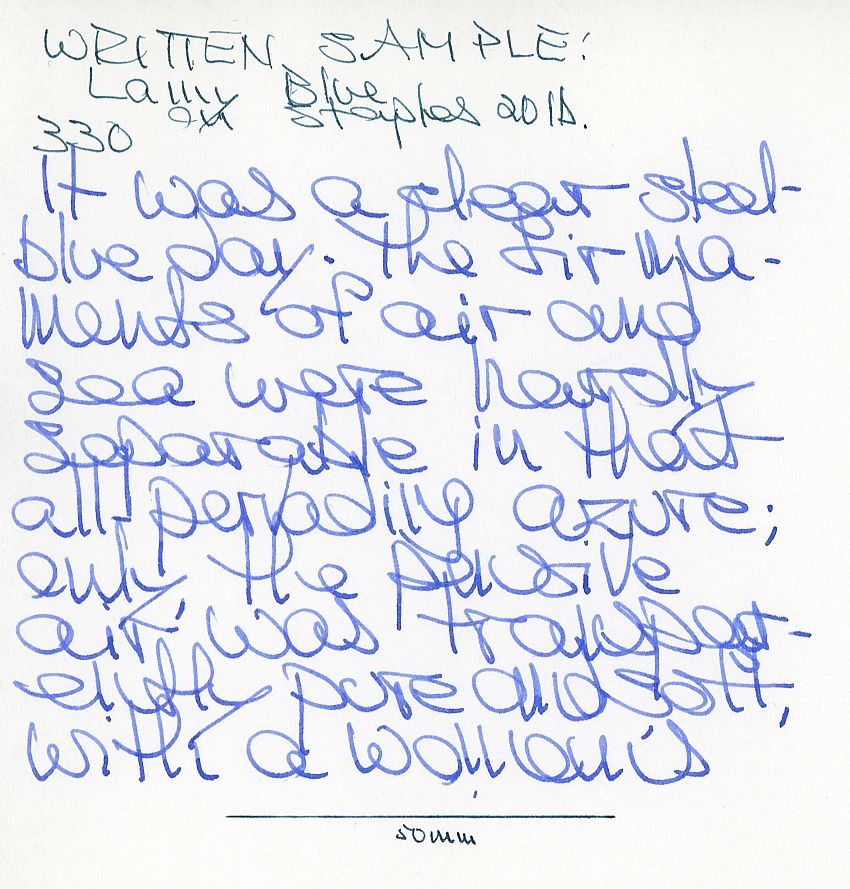 WRITTEN SAMPLE:
Lamy Blue
on Staples 20lb.
330
It was a clear steel-
blue day. The firma-
ments of air and
sea were hardly
separable in that
all-pervading azure;
only, the pensive
air, was transpar-
ently pure and soft,
with a woman's
50mm